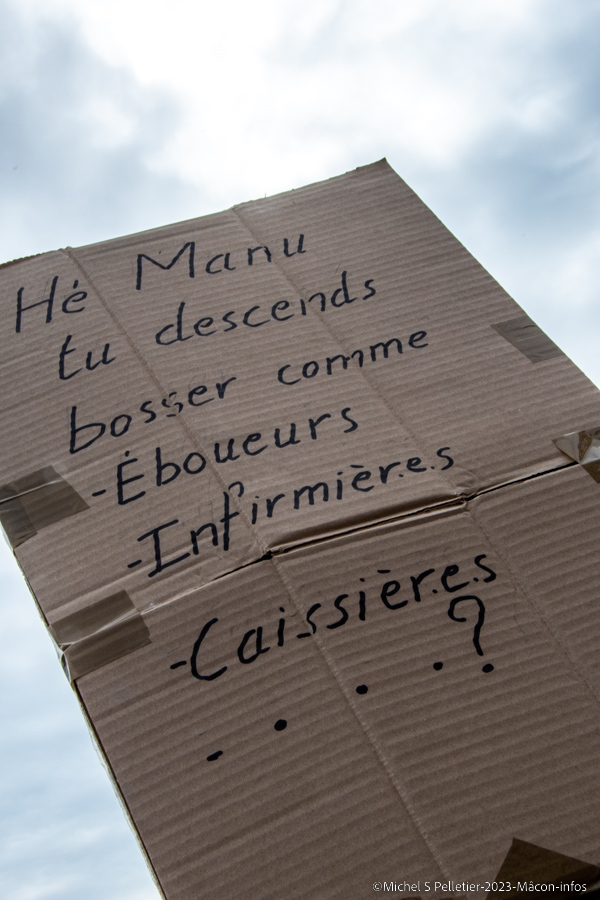 Hé Manu
tu descends
bosser comme
-Éboueurs
-Infirmièr.e.s
-Caissièr.e.s
- . . . ?
©Michel S Pelletier-2023-Mâcon-infos